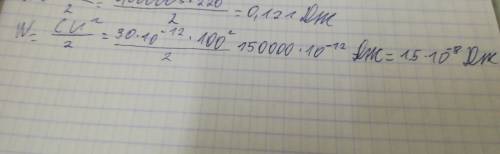 2 = 0,000005·220 / 2 = 0,121 Дж
W = CU² / 2 = 30·10⁻¹²·100² / 2 150000·10⁻¹² Дж = 15·10⁻⁸ Дж